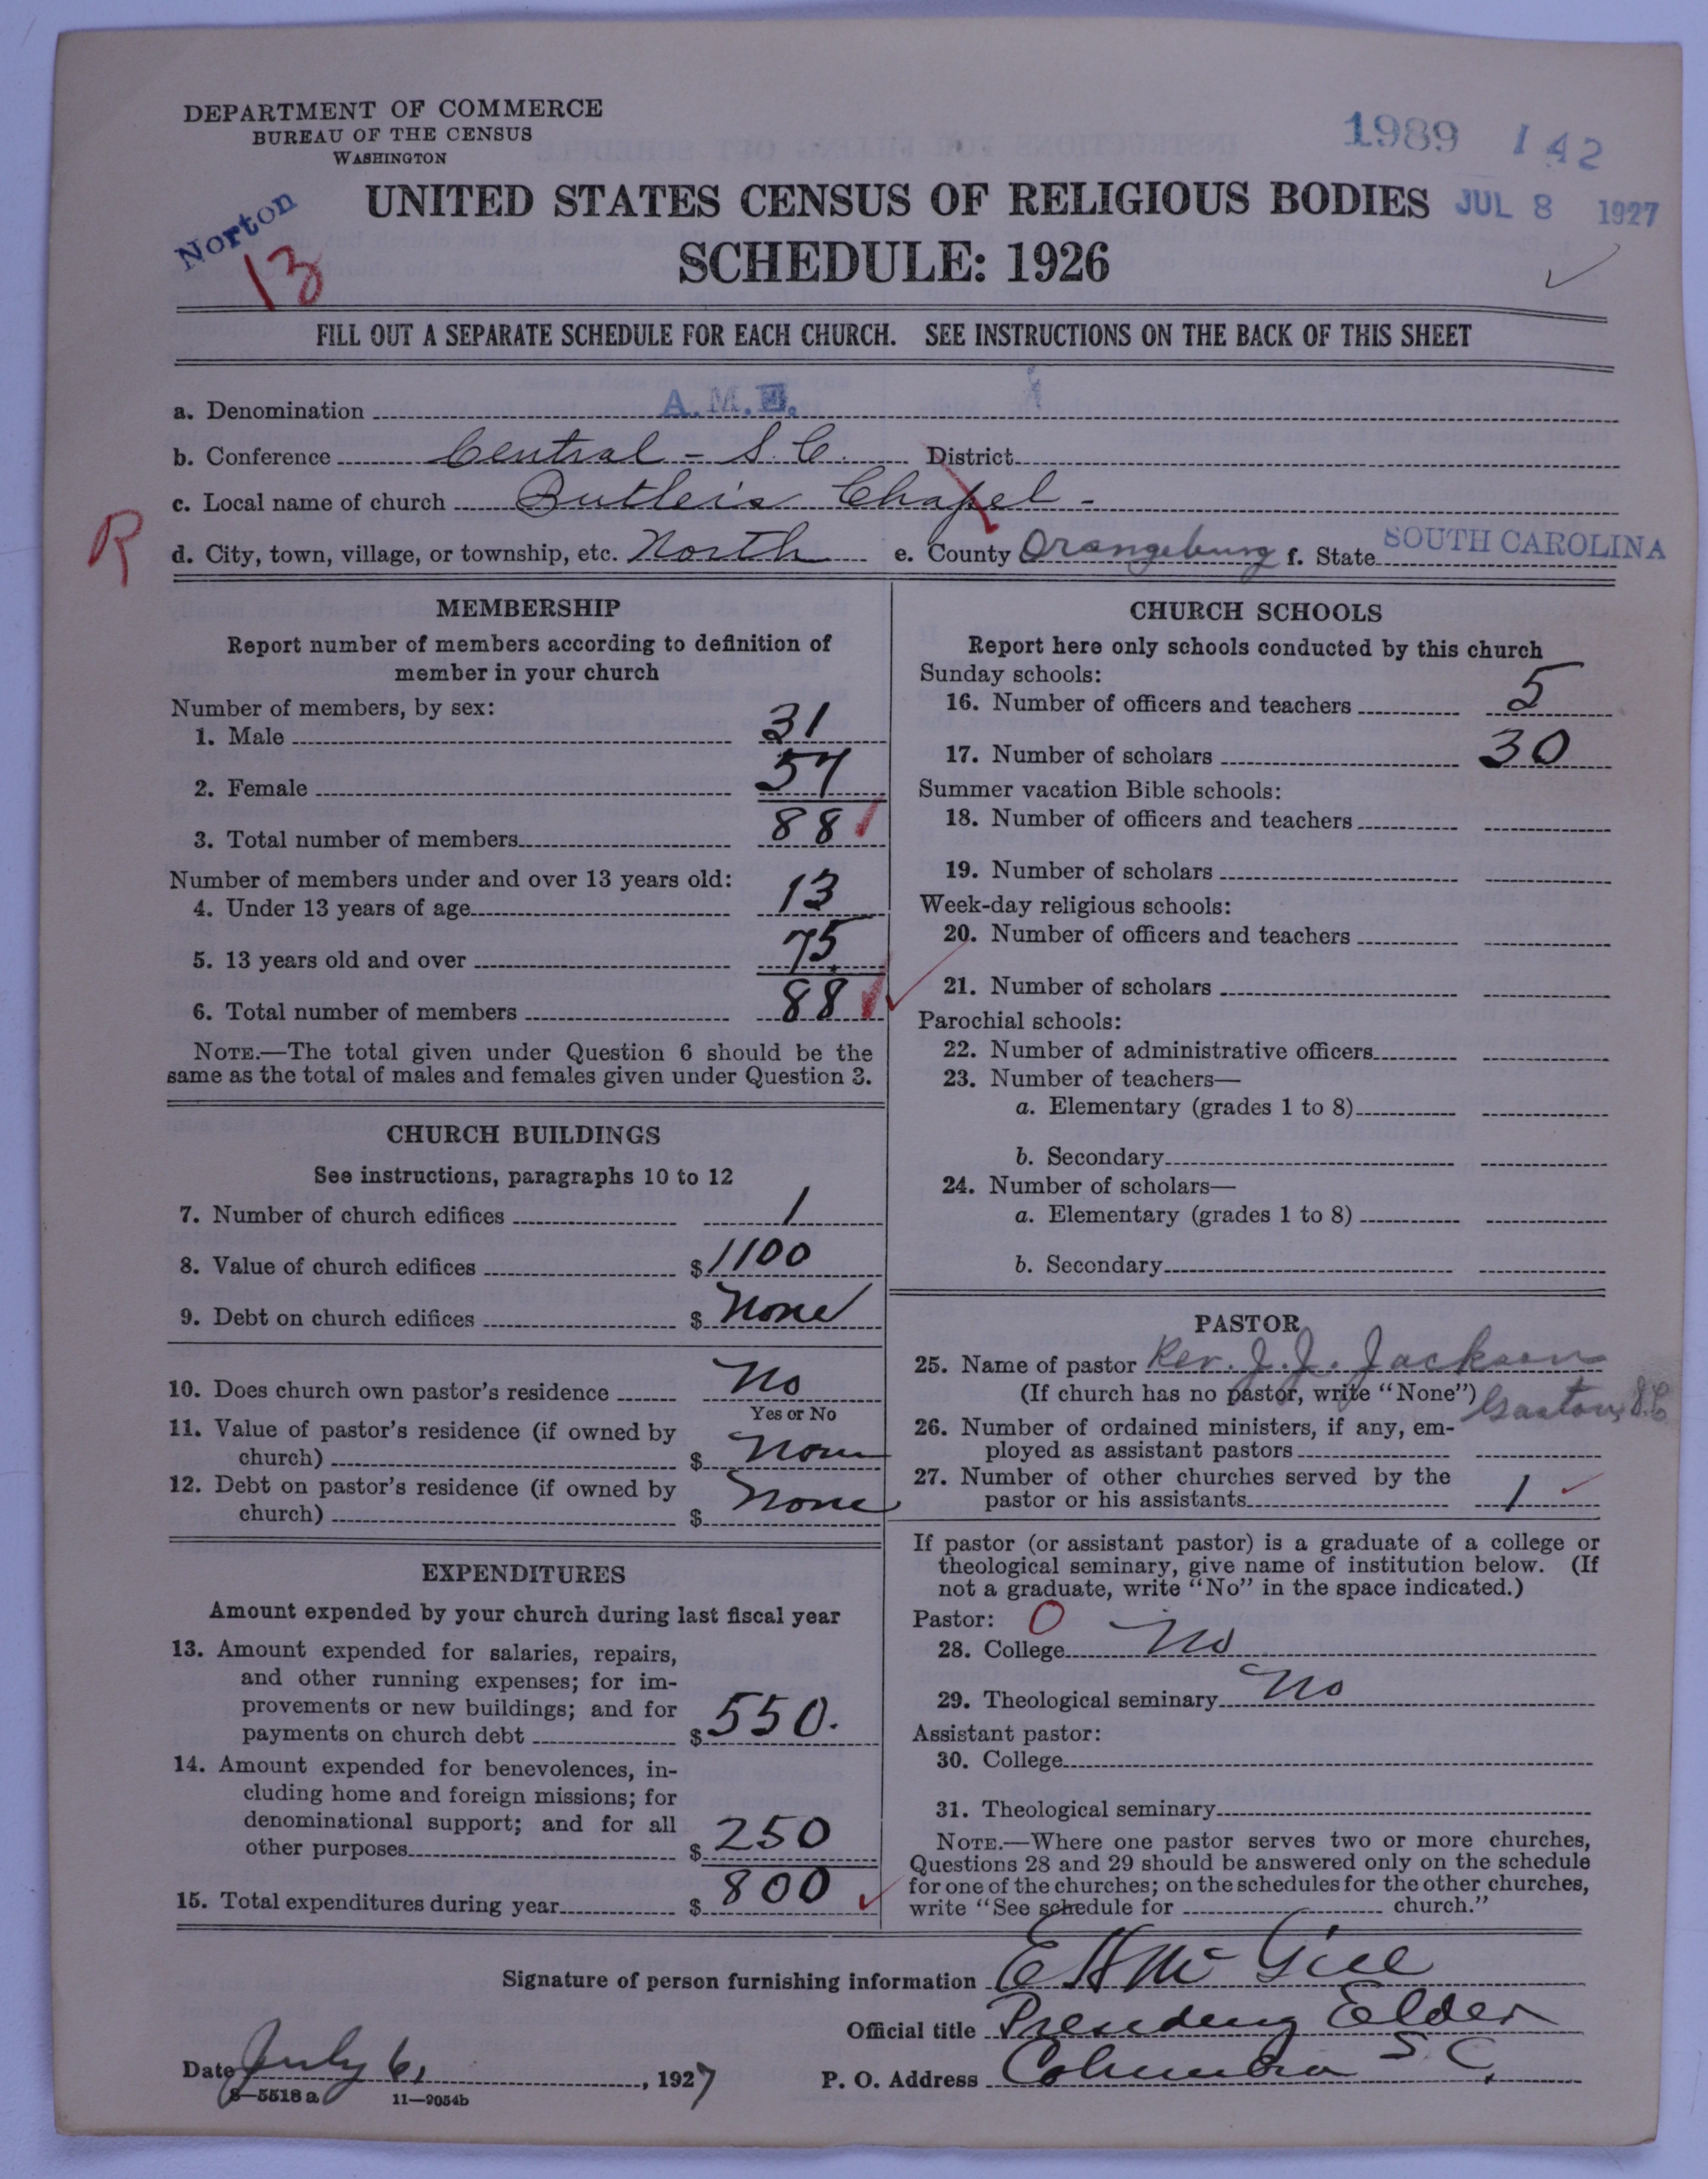 DEPARTMENT OF COMMERCE
BUREAU OF THE CENSUS
WASHINGTON
1989 142
Norton
13
UNITED STATES CENSUS OF RELIGIOUS BODIES
JUL 8 1927
SCHEDULE: 1926
FILL OUT A SEPARATE SCHEDULE FOR EACH CHURCH. SEE INSTRUCTIONS ON THE BACK OF THIS SHEET
a. Denomination A.M.E.
b. Conference Central - S.C. District
c. Local name of church Butler's Chapel -
R
d. City, town, village, or township, etc. North e. County Orangeburg f. State SOUTH CAROLINA
MEMBERSHIP
Report number of members according to definition of
member in your church
Number of members, by sex:
1. Male 31
2. Female 57
3. Total number of members 88
Number of members under and over 13 years old:
4. Under 13 years of age 13
5. 13 years old and over 75
6. Total number of members 88
NOTE.—The total given under Question 6 should be the
same as the total of males and females given under Question 3.
CHURCH BUILDINGS
See instructions, paragraphs 10 to 12
7. Number of church edifices 1
8. Value of church edifices $1100
9. Debt on church edifices $ None
10. Does church own pastor's residence No
Yes or No
11. Value of pastor's residence (if owned by
church) $ None
12. Debt on pastor's residence (if owned by
church) $ None
EXPENDITURES
Amount expended by your church during last fiscal year
13. Amount expended for salaries, repairs,
and other running expenses; for im-
provements or new buildings; and for
payments on church debt $550.
14. Amount expended for benevolences, in-
cluding home and foreign missions; for
denominational support; and for all
other purposes $250
15. Total expenditures during year $800
CHURCH SCHOOLS
Report here only schools conducted by this church
Sunday schools:
16. Number of officers and teachers 5
17. Number of scholars 30
Summer vacation Bible schools:
18. Number of officers and teachers
19. Number of scholars
Week-day religious schools:
20. Number of officers and teachers
21. Number of scholars
Parochial schools:
22. Number of administrative officers
23. Number of teachers—
a. Elementary (grades 1 to 8)
b. Secondary
24. Number of scholars—
a. Elementary (grades 1 to 8)
b. Secondary
PASTOR
25. Name of pastor Rev. J.J. Jackson
(If church has no pastor, write "None") Gaston, S.C.
26. Number of ordained ministers, if any, em-
ployed as assistant pastors
27. Number of other churches served by the
pastor or his assistants 1
If pastor (or assistant pastor) is a graduate of a college or
theological seminary, give name of institution below. (If
not a graduate, write "No" in the space indicated.)
Pastor: 0
28. College No
29. Theological seminary No
Assistant pastor:
30. College
31. Theological seminary
NOTE.—Where one pastor serves two or more churches,
Questions 28 and 29 should be answered only on the schedule
for one of the churches; on the schedules for the other churches,
write "See schedule for church."
Signature of person furnishing information E H McGill
Official title Presiding Elder
Date July 6, 1927 P. O. Address Columbia S.C.
8—5518 a 11—9054b